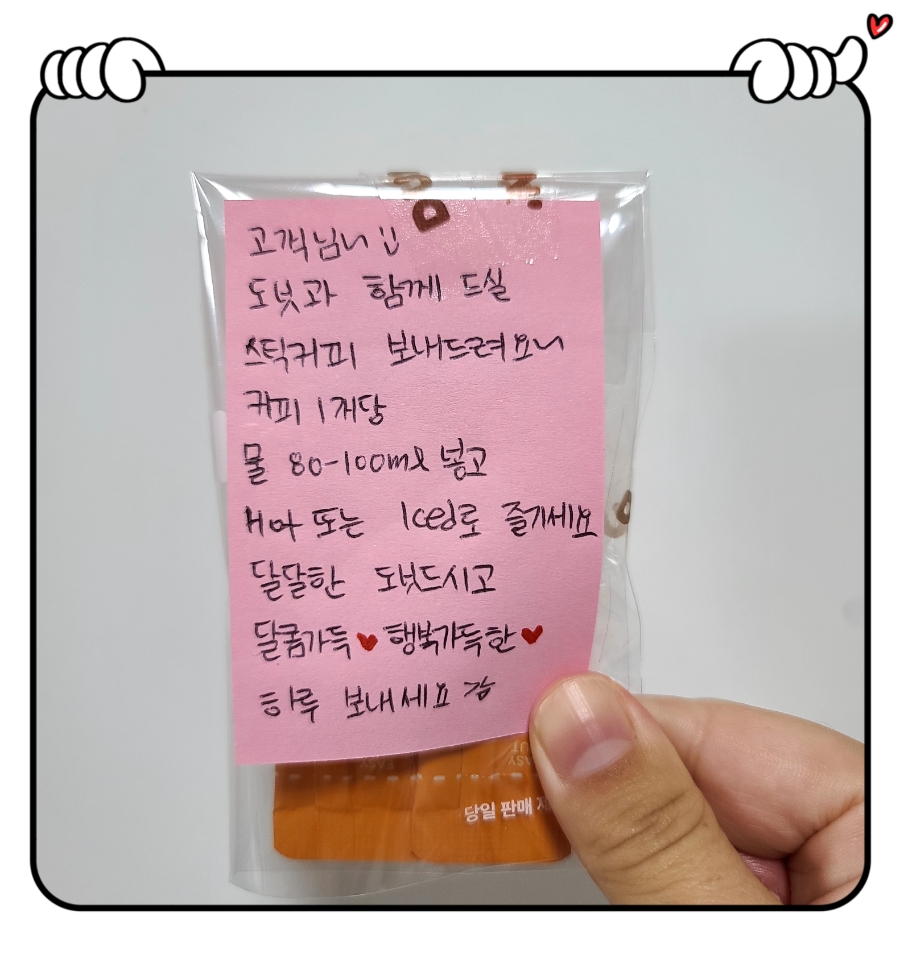 고객님~ :)
도넛과 함께 드실
스틱커피 보내드려요~
커피 1개당
물 80-100ml 넣고
Hot 또는 Iced로 즐기세요
달달한 도넛드시고
달콤가득♥ 행복가득한♥
하루 보내세요
EASY
당일 판매